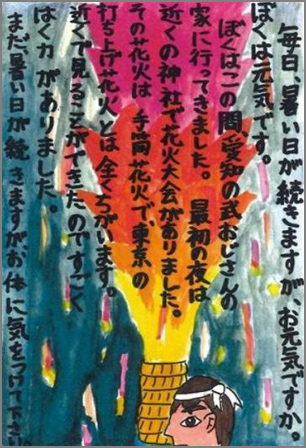 毎日暑い日が続きますが、お元気ですか、
ぼくは元気です。
ぼくはこの間、愛知の武おじさんの
家に行ってきました。最初の夜は
近くの神社で花火大会がありました。
その花火は、手筒花火で、東京の
打ち上げ花火とは全くちがいます。
近くで見ることができたのですごく
はく力がありました。
まだ、暑い日が続きますがお体に気をつけて下さい